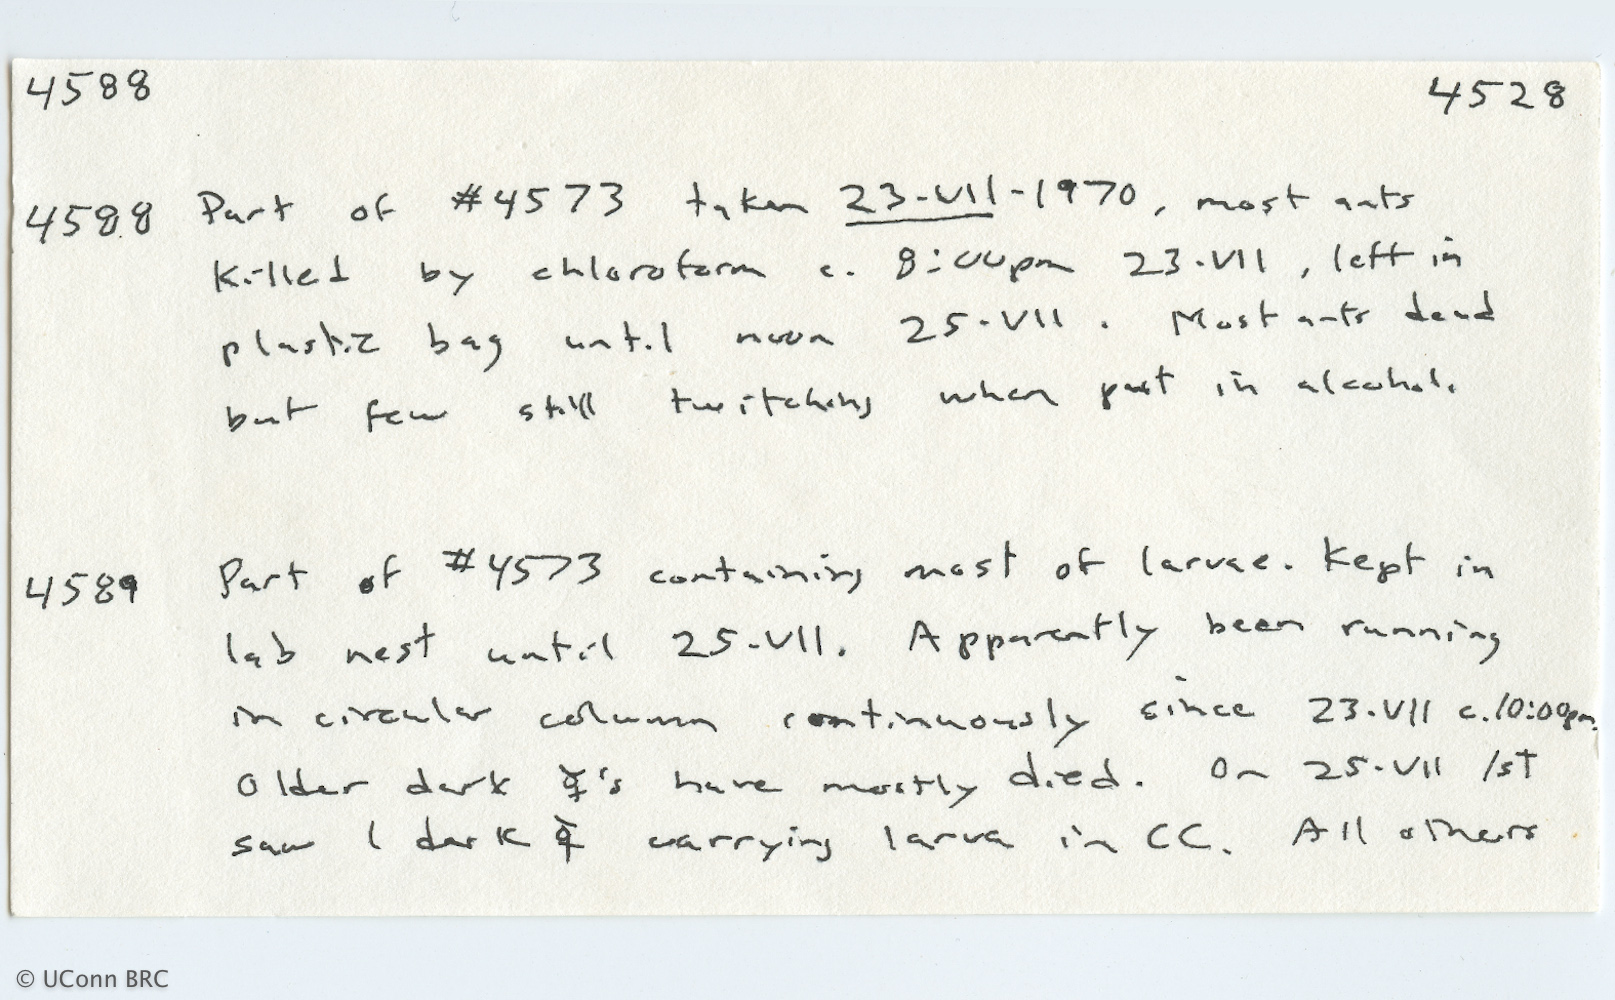 4588 4528
4588 Part of #4573 taken 23-VII-1970, most ants
killed by chloroform c. 8:00pm 23-VII, left in
plastic bag until noon 25-VII. Most ants dead
but few still twitching when put in alcohol.
4589 Part of #4573 containing most of larvae. Kept in
lab nest until 25-VII. Apparently been running
in circular column continuously since 23-VII c. 10:00pm.
Older dark ☿'s have mostly died. On 25-VII 1st
saw 1 dark ☿ carrying larva in CC. All others
© UConn BRC